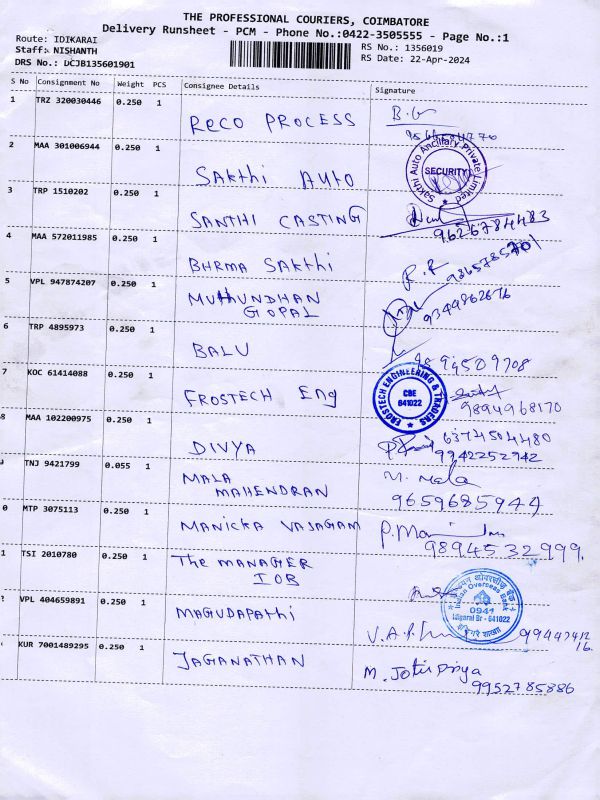 THE PROFESSIONAL COURIERS, COIMBATORE
Delivery Runsheet - PCM - Phone No.:0422-3505555 - Page No.:1
Route: IDIKARAI
Staff: NISHANTH
DRS No.: DCJB135601901
RS No.: 1356019
RS Date: 22-Apr-2024
S No Consignment No Weight PCS Consignee Details Signature
1 TRZ 320030446 0.250 1 RECO PROCESS B.
2 MAA 301006944 0.250 1 SAKthi AUTO
Sakthi Auto Ancillary Private Limited
SECURITY
3 TRP 1510202 0.250 1 SANTHI CASTING
9626784483
4 MAA 572011985 0.250 1 BHRMA SAKthi
5 VPL 947874207 0.250 1 MUTHUNDHAN
GOPAL
9349862676
6 TRP 4895973 0.250 1 BALU
7 KOC 61414088 0.250 1 FROSTECH Eng
FROSTECH ENGINEERING & TRADERS
CBE
641022
9894968170
8 MAA 102200975 0.250 1 DIVYA
6374504480
9942252942
TNJ 9421799 0.055 1 MALA
MAHENDRAN
M. Mala
9659685944
0 MTP 3075113 0.250 1 MANICKA VASAGAM
9894532999.
1 TSI 2010780 0.250 1 The MANAGER
IOB
इण्डियन ओवरसीज़ बैंक
Indian Overseas Bank
0941
Idigarai Br - 641022
VPL 404659891 0.250 1 MAGUDAPAthi
KUR 7001489295 0.250 1 JAGANATHAN
M. Jothipriya
9952785886